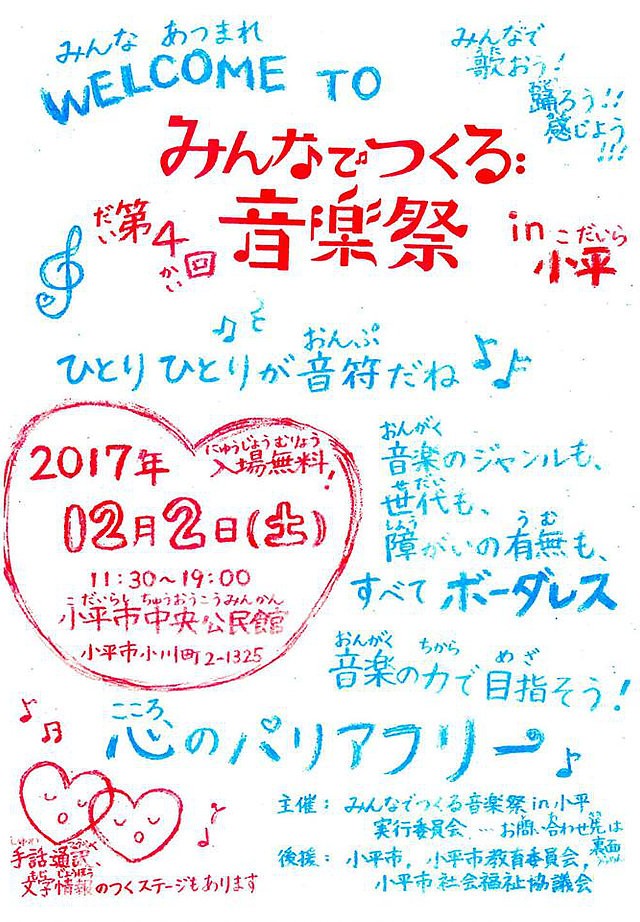 みんな あつまれ
WELCOME TO
みんなで
歌おう!
うた
踊ろう!!
おど
感じよう!!!
かん
みんなでつくる♪
音楽祭
第4回
だい
かい
in 小平
こだいら
ひとりひとりが音符だね
おんぷ
2017年
入場無料!
にゅうじょうむりょう
12月2日(土)
11:30〜19:00
こだいらし ちゅうおうこうみんかん
小平市中央公民館
小平市小川町2-1325
おんがく
音楽のジャンルも、
せだい
世代も、
しょう うむ
障がいの有無も、
すべて ボーダレス
おんがく ちから めざ
音楽の力で目指そう!
こころ
心のバリアフリー
主催: みんなでつくる音楽祭in小平
実行委員会 …お問い合わせ先は
裏面
後援: 小平市, 小平市教育委員会,
小平市社会福祉協議会
手話通訳、
文字情報のつくステージもあります